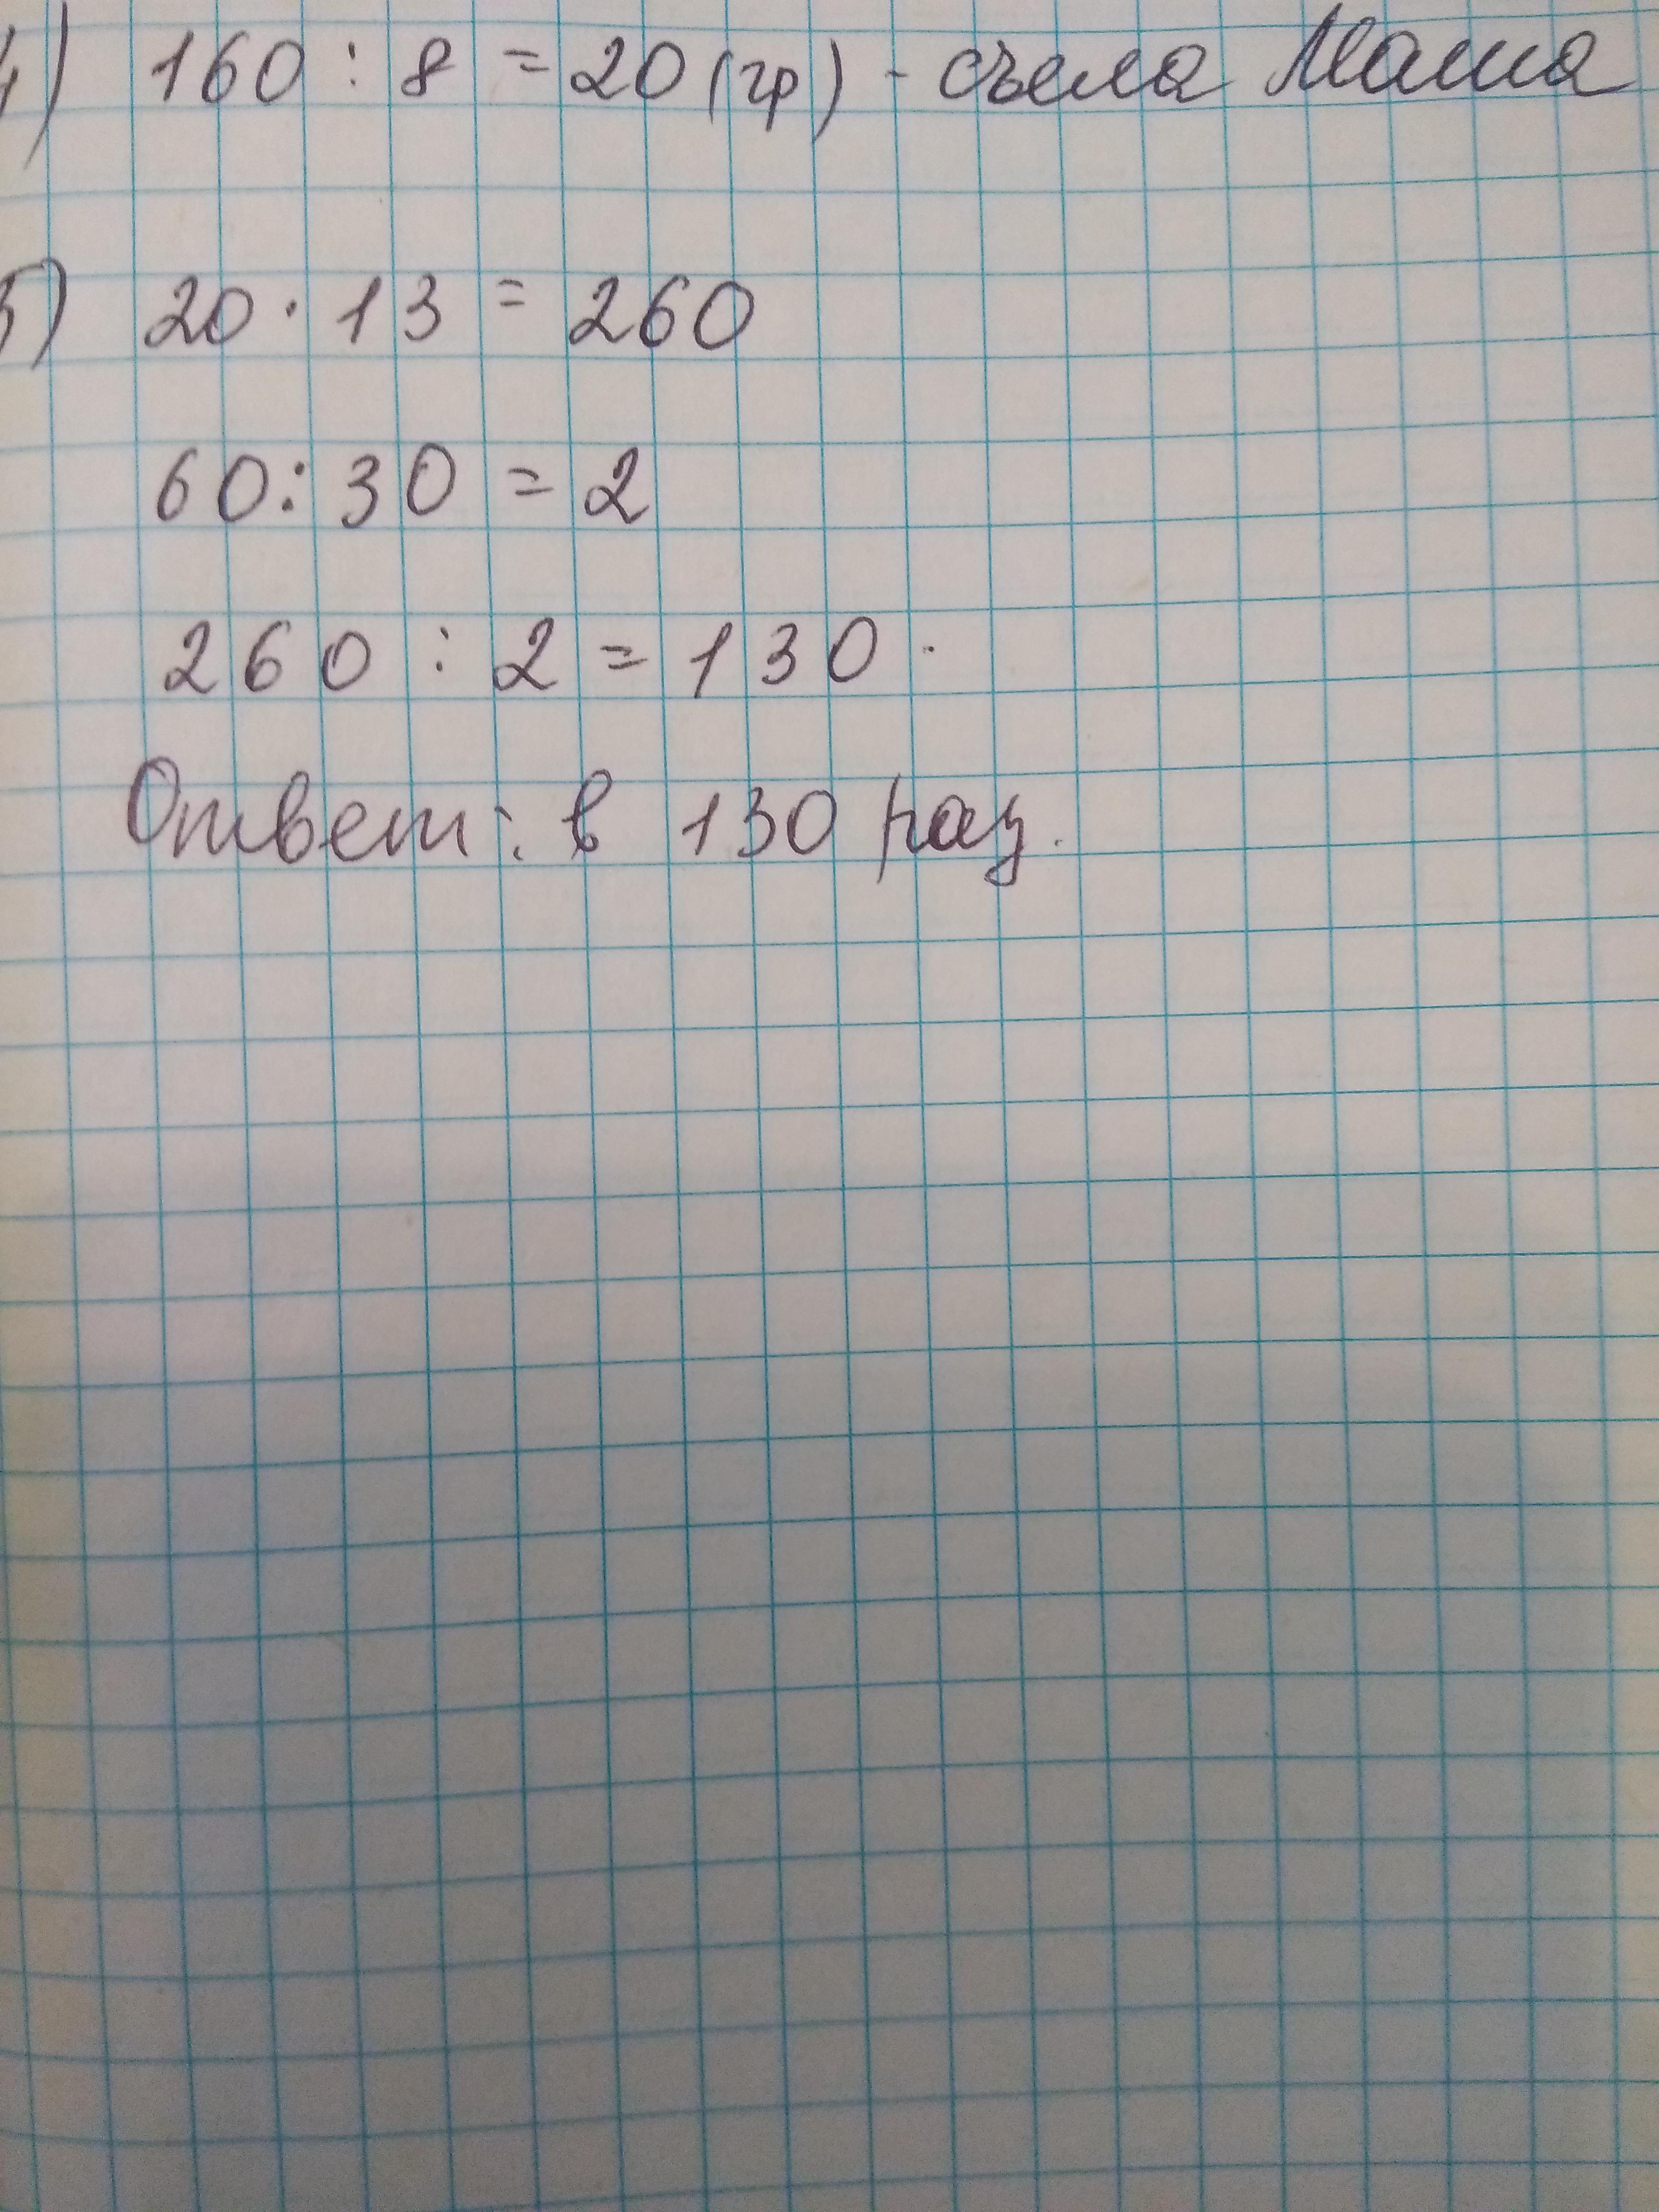 4) 160 : 8 = 20 (гр) - съела Маша
5) 20 · 13 = 260
60 : 30 = 2
260 : 2 = 130.
Ответ: в 130 раз.